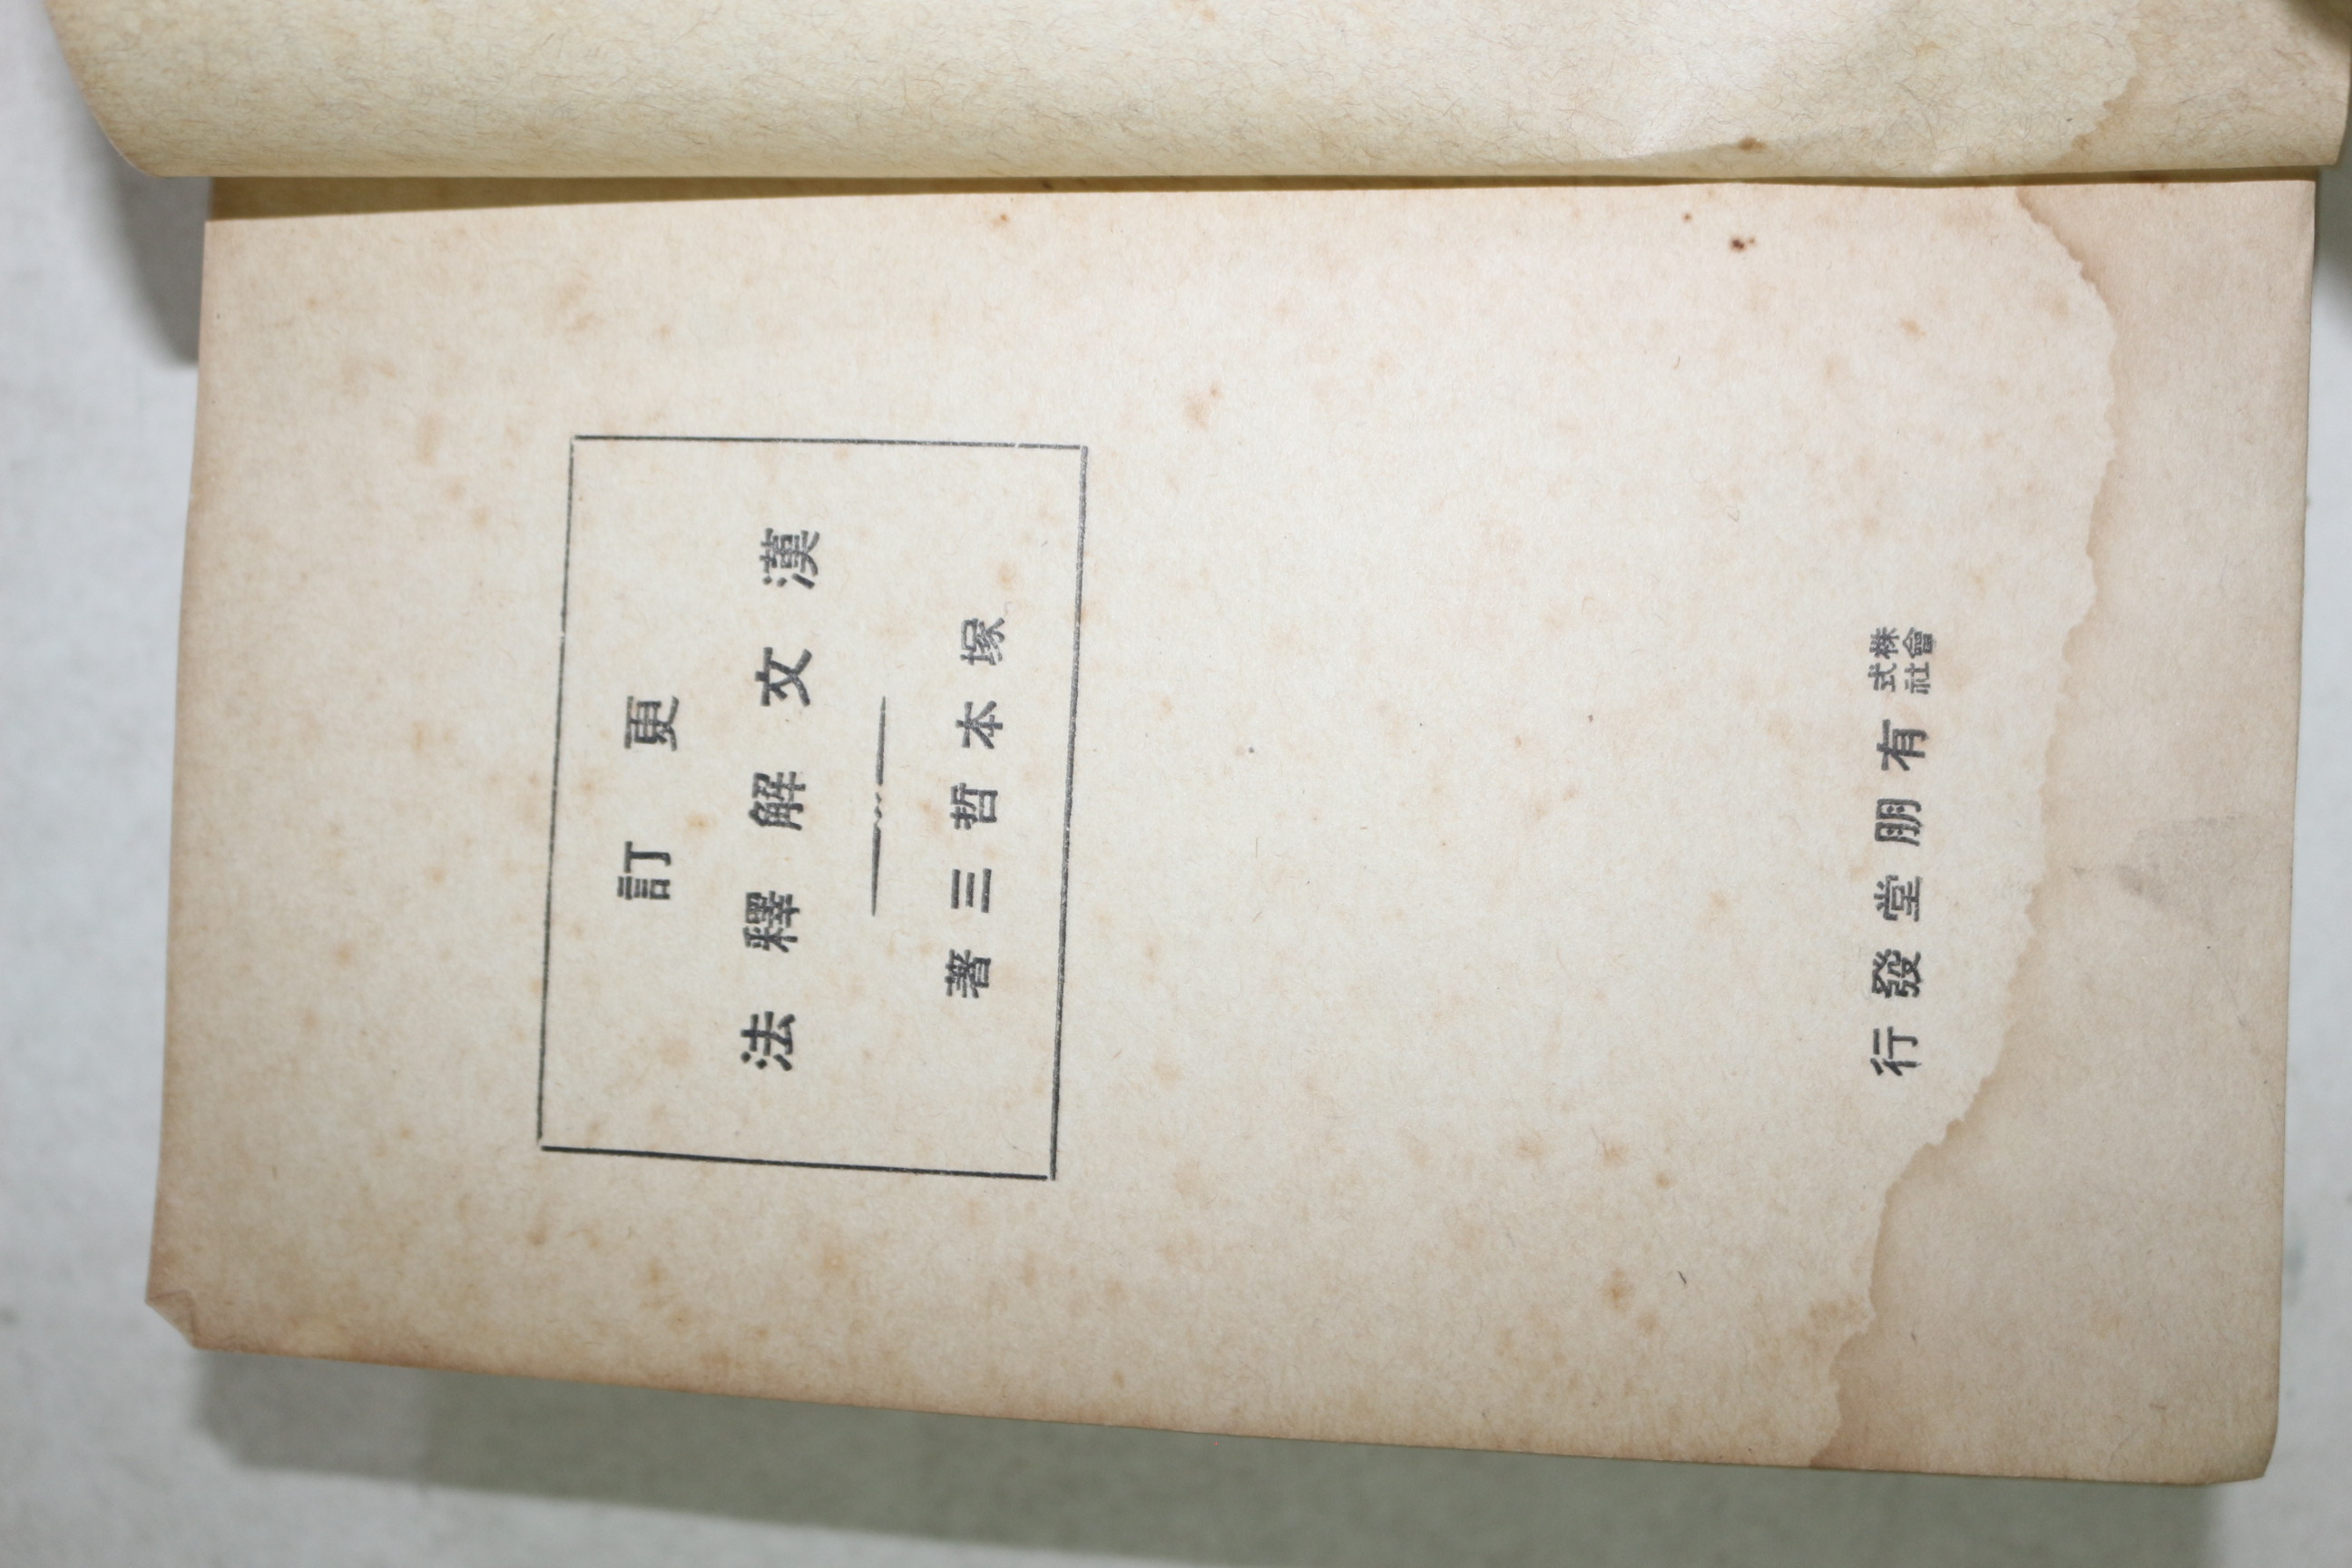 更訂
漢文解釋法
塚本哲三著
株式會社有朋堂發行